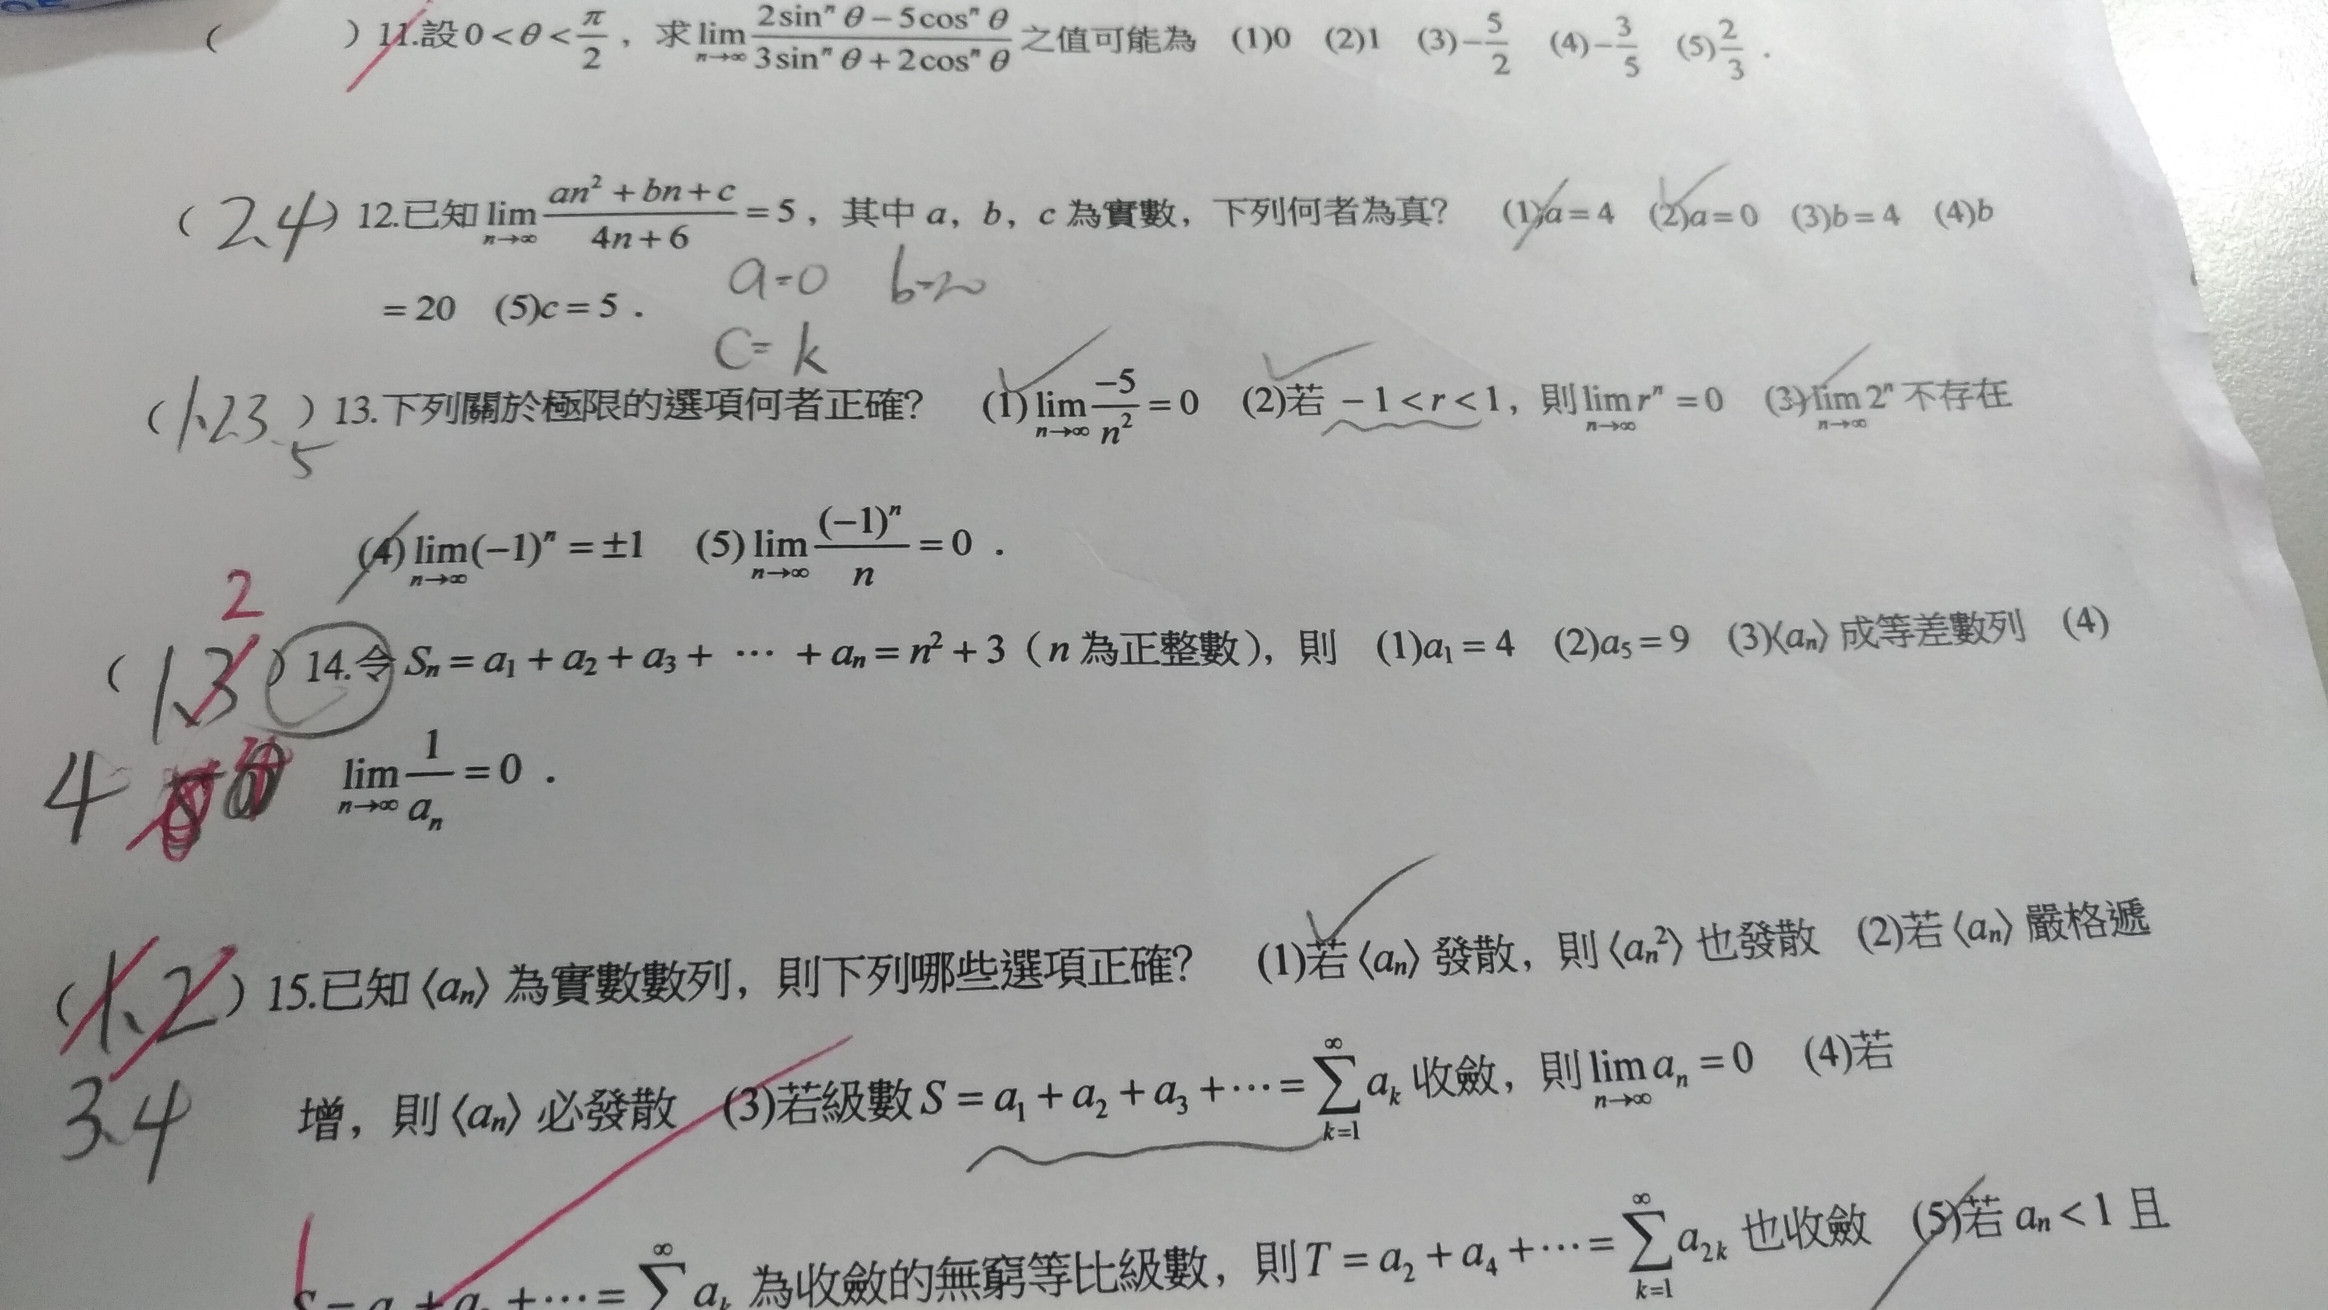 ( ) 11.設 0 < θ < π/2 , 求 lim n→∞ (2sinⁿ θ − 5cosⁿ θ)/(3sinⁿ θ + 2cosⁿ θ) 之值可能為 (1)0 (2)1 (3)−5/2 (4)−3/5 (5)2/3 .
(2.4) 12.已知 lim n→∞ (an² + bn + c)/(4n + 6) = 5 , 其中 a, b, c 為實數, 下列何者為真? (1)a = 4 (2)a = 0 (3)b = 4 (4)b
= 20 (5)c = 5 .
a=0 b=20
c= k
(1.2.3 ) 13.下列關於極限的選項何者正確? (1) lim n→∞ −5/n² = 0 (2)若 −1 < r < 1, 則 lim n→∞ rⁿ = 0 (3) lim n→∞ 2ⁿ 不存在
5
(4) lim n→∞ (−1)ⁿ = ±1 (5) lim n→∞ (−1)ⁿ/n = 0 .
2
(1.3) 14.令 Sₙ = a₁ + a₂ + a₃ + ⋯ + aₙ = n² + 3 ( n 為正整數), 則 (1)a₁ = 4 (2)a₅ = 9 (3)⟨aₙ⟩ 成等差數列 (4)
4 lim n→∞ 1/aₙ = 0 .
(1.2) 15.已知 ⟨aₙ⟩ 為實數數列, 則下列哪些選項正確? (1)若 ⟨aₙ⟩ 發散, 則 ⟨aₙ²⟩ 也發散 (2)若 ⟨aₙ⟩ 嚴格遞
3.4 增, 則 ⟨aₙ⟩ 必發散 (3)若級數 S = a₁ + a₂ + a₃ + ⋯ = ∑ k=1 ∞ aₖ 收斂, 則 lim n→∞ aₙ = 0 (4)若
+ ⋯ = ∑ ∞ aₖ 為收斂的無窮等比級數, 則 T = a₂ + a₄ + ⋯ = ∑ k=1 ∞ a₂ₖ 也收斂 (5)若 aₙ < 1 且